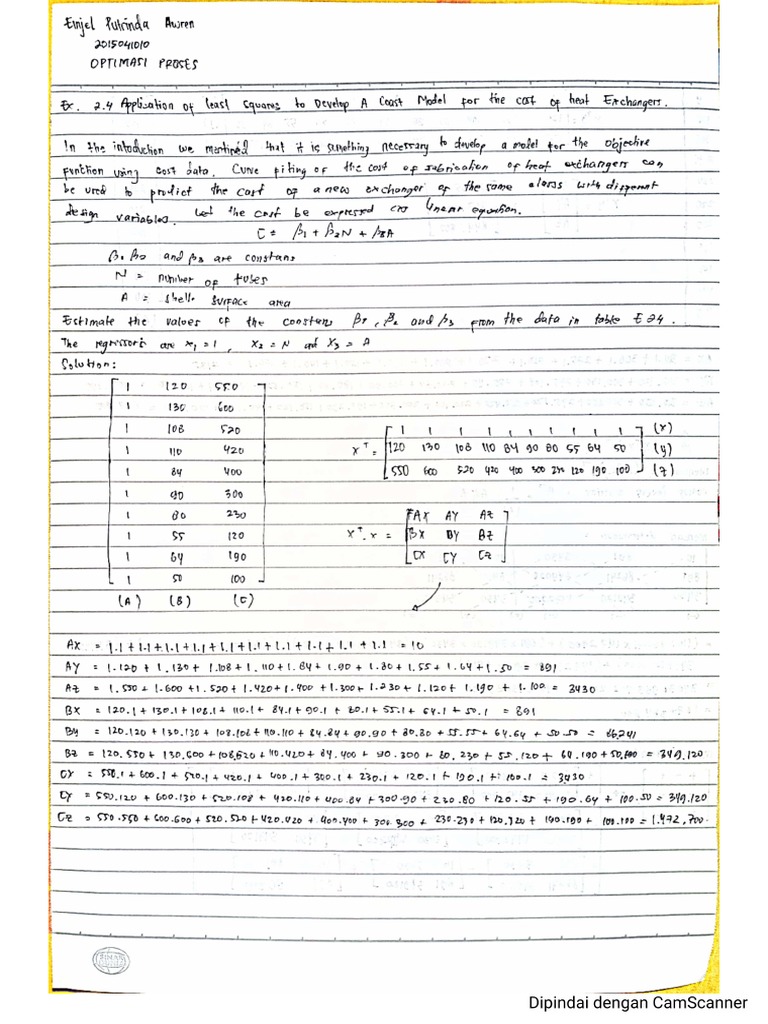 Einjel Putrinda Awren
2015041010
OPTIMASI PROSES
Ex. 2.4 Application of least squares to Develop A Coast Model for the cost of heat Exchangers.
In the intoduction we mentioned that it is something necessary to develop a model for the objective
function using cost data. Curve fiting of the cost of fabrication of heat exchangers can
be used to predict the cost of a new exchanger of the same class with different
design variables. Let the cost be expressed as linear equation.
C = β1 + β2N + β3A
β1 β2 and β3 are constans
N = number of tubes
A = shells surface area
Estimate the values of the constans β1, β2 and β3 from the data in table E 24.
The regressors are x1 = 1, x2 = N and x3 = A
Solution:
1 120 550
1 130 600
1 108 520
1 110 420
1 84 400
1 90 300
1 80 230
1 55 120
1 64 190
1 50 100
(A) (B) (C)
1 1 1 1 1 1 1 1 1 1 (x)
x^T = 120 130 108 110 84 90 80 55 64 50 (y)
550 600 520 420 400 300 230 120 190 100 (z)
AX AY AZ
x^T. x = BX BY BZ
CX CY CZ
AX = 1.1 + 1.1 + 1.1 + 1.1 + 1.1 + 1.1 + 1.1 + 1.1 + 1.1 + 1.1 = 10
AY = 1.120 + 1.130 + 1.108 + 1.110 + 1.84 + 1.90 + 1.80 + 1.55 + 1.64 + 1.50 = 891
AZ = 1.550 + 1.600 + 1.520 + 1.420 + 1.400 + 1.300 + 1.230 + 1.120 + 1.190 + 1.100 = 3430
BX = 120.1 + 130.1 + 108.1 + 110.1 + 84.1 + 90.1 + 80.1 + 55.1 + 64.1 + 50.1 = 891
By = 120.120 + 130.130 + 108.108 + 110.110 + 84.84 + 90.90 + 80.80 + 55.55 + 64.64 + 50.50 = 86,241
BZ = 120.550 + 130.600 + 108.520 + 110.420 + 84.400 + 90.300 + 80.230 + 55.120 + 64.190 + 50.100 = 349.120
CX = 550.1 + 600.1 + 520.1 + 420.1 + 400.1 + 300.1 + 230.1 + 120.1 + 190.1 + 100.1 = 3430
CY = 550.120 + 600.130 + 520.108 + 420.110 + 400.84 + 300.90 + 230.80 + 120.55 + 190.64 + 100.50 = 349.120
CZ = 550.550 + 600.600 + 520.520 + 420.420 + 400.400 + 300.300 + 230.230 + 120.120 + 190.190 + 100.100 = 1.472,700.
Dipindai dengan CamScanner